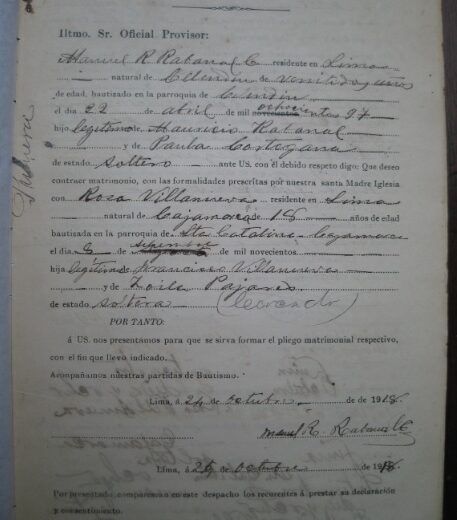 Iltmo. Sr. Oficial Provisor:
Manuel R Rabanal C residente en Lima
natural de Celendin de ventidos años
de edad, bautizado en la parroquia de Celendin
el día 22 de abril de mil novecientos ochocientos 97
hijo legítimo de Mauricio Rabanal
y de Paula Cortegana
de estado soltero ante US. con el debido respeto digo: Que deseo
contraer matrimonio, con las formalidades prescritas por nuestra santa Madre Iglesia
con Rosa Villanueva residente en Lima
natural de Cajamarca de 18 años de edad
bautizada en la parroquia de Sta Catalina Cajamarca
el día 8 de septiembre de mil novecientos
hija legítima Francisco Villanueva
y de Zoila Pajares
de estado soltera
POR TANTO:
á US. nos presentámos para que se sirva formar el pliego matrimonial respectivo,
con el fin que llevo indicado.
Acompañamos nuestras partidas de Bautismo.
Lima, á 24 de octubre de de 1918.
Manuel R. Rabanal C
Lima, á 24 de Octubre de 1918.
Por presentado comparescan en este despacho los recurentes á prestar su declaración
y consentimiento.
Villanueva